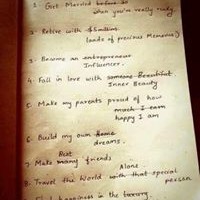 1. Get Married before 30
when you're really ready.
2. Retire with $5 million
loads of precious Memories)
3. Become an entrepreneur
Influencer.
4. Fall in love with someone Beautiful
Inner Beauty
5. Make my parents proud of how
much I earn
happy I am
6. Build my own home
dreams.
Real
7. Make many friends
Alone
8. Travel the World with that special
person
happiness in the luxury